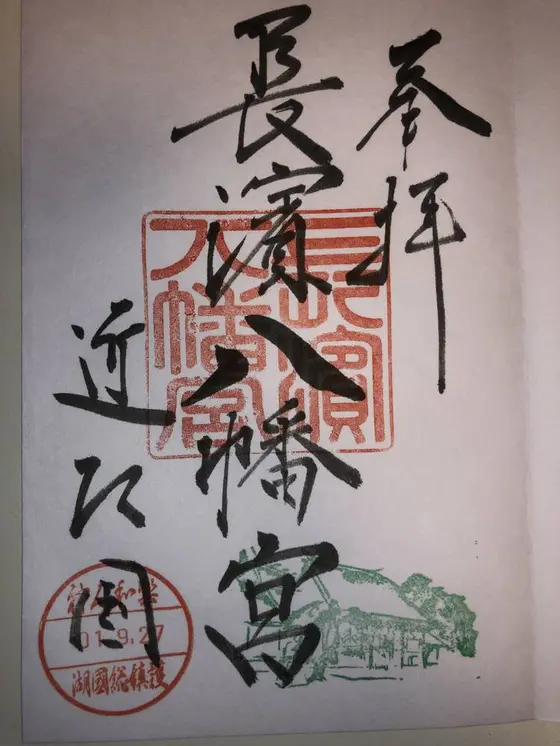 奉拝
長濱八幡宮
近江国
長濱
八幡宮
01.9.27
湖國総鎮護